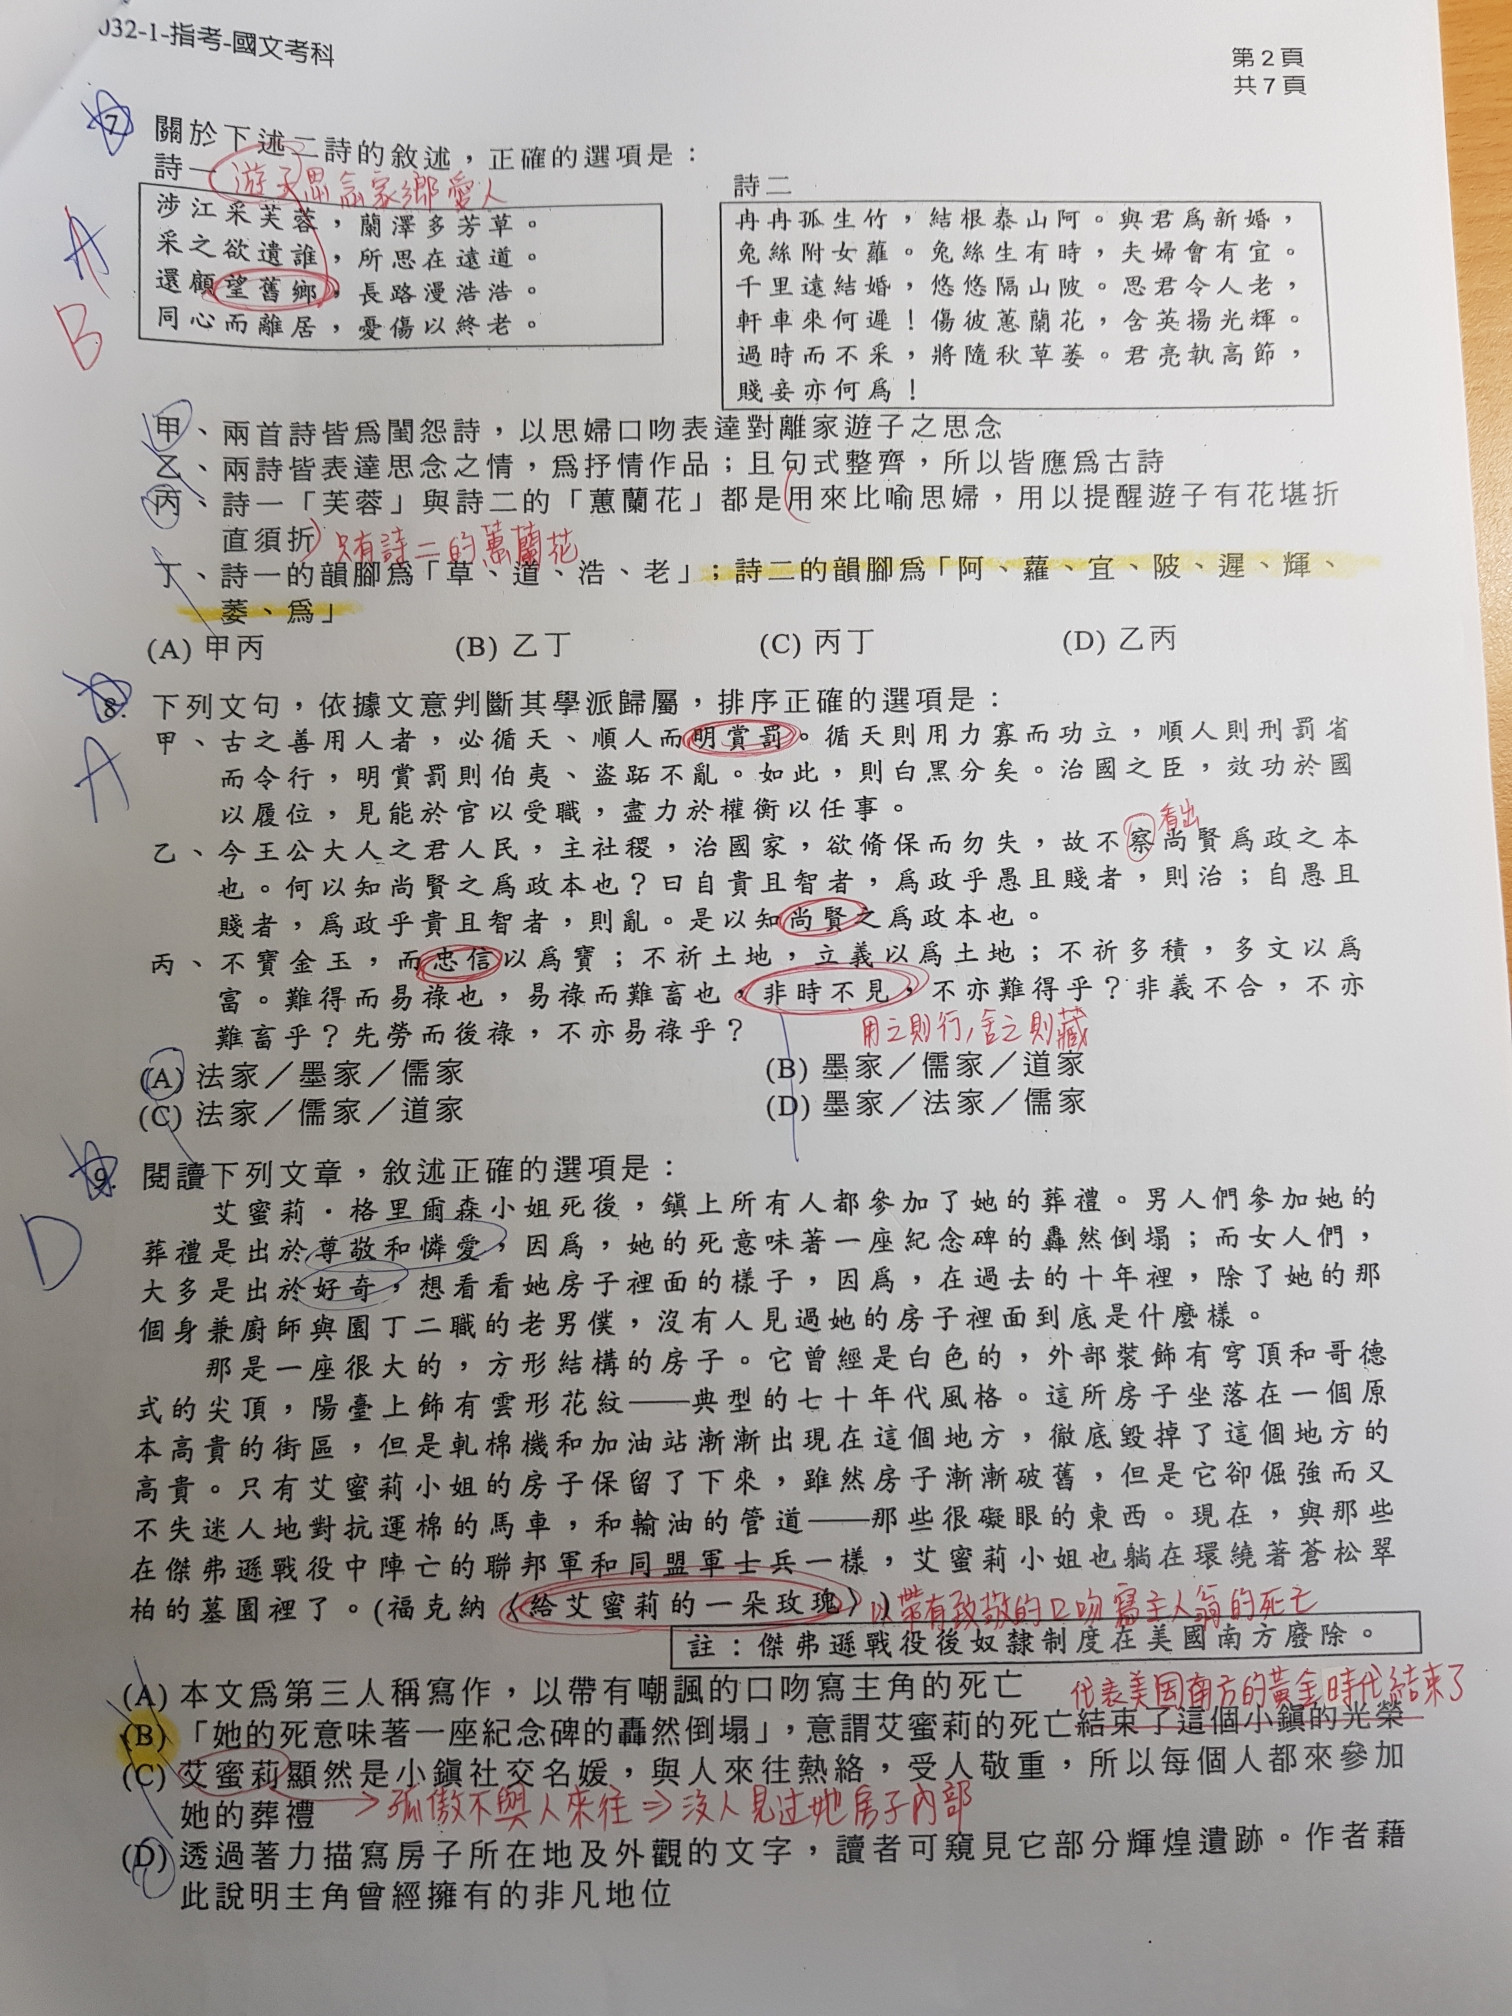 032-1-指考-國文考科
第2頁
共7頁
7. 關於下述二詩的敘述，正確的選項是：
詩一
游子思念家鄉愛人
涉江采芙蓉，蘭澤多芳草。
采之欲遺誰，所思在遠道。
還顧望舊鄉，長路漫浩浩。
同心而離居，憂傷以終老。
A
B
詩二
冉冉孤生竹，結根泰山阿。與君爲新婚，
兔絲附女蘿。兔絲生有時，夫婦會有宜。
千里遠結婚，悠悠隔山陂。思君令人老，
軒車來何遲！傷彼蕙蘭花，含英揚光輝。
過時而不采，將隨秋草萎。君亮執高節，
賤妾亦何爲！
甲、兩首詩皆爲閨怨詩，以思婦口吻表達對離家遊子之思念
乙、兩詩皆表達思念之情，爲抒情作品；且句式整齊，所以皆應爲古詩
丙、詩一「芙蓉」與詩二的「蕙蘭花」都是用來比喻思婦，用以提醒遊子有花堪折
直須折
只有詩二的蕙蘭花
丁、詩一的韻腳爲「草、道、浩、老」；詩二的韻腳爲「阿、蘿、宜、陂、遲、輝、
萎、爲」
(A) 甲丙 (B) 乙丁 (C) 丙丁 (D) 乙丙
8. 下列文句，依據文意判斷其學派歸屬，排序正確的選項是：
A
甲、古之善用人者，必循天、順人而明賞罰。循天則用力寡而功立，順人則刑罰省
而令行，明賞罰則伯夷、盜跖不亂。如此，則白黑分矣。治國之臣，效功於國
以履位，見能於官以受職，盡力於權衡以任事。
看出
乙、今王公大人之君人民，主社稷，治國家，欲脩保而勿失，故不察尚賢爲政之本
也。何以知尚賢之爲政本也？曰自貴且智者，爲政乎愚且賤者，則治；自愚且
賤者，爲政乎貴且智者，則亂。是以知尚賢之爲政本也。
丙、不寶金玉，而忠信以爲寶；不祈土地，立義以爲土地；不祈多積，多文以爲
富。難得而易祿也，易祿而難畜也，非時不見，不亦難得乎？非義不合，不亦
難畜乎？先勞而後祿，不亦易祿乎？
用之則行，舍之則藏
(A) 法家／墨家／儒家 (B) 墨家／儒家／道家
(C) 法家／儒家／道家 (D) 墨家／法家／儒家
9. 閱讀下列文章，敘述正確的選項是：
D
艾蜜莉．格里爾森小姐死後，鎮上所有人都參加了她的葬禮。男人們參加她的
葬禮是出於尊敬和憐愛，因爲，她的死意味著一座紀念碑的轟然倒塌；而女人們，
大多是出於好奇，想看看她房子裡面的樣子，因爲，在過去的十年裡，除了她的那
個身兼廚師與園丁二職的老男僕，沒有人見過她的房子裡面到底是什麼樣。
那是一座很大的，方形結構的房子。它曾經是白色的，外部裝飾有穹頂和哥德
式的尖頂，陽臺上飾有雲形花紋——典型的七十年代風格。這所房子坐落在一個原
本高貴的街區，但是軋棉機和加油站漸漸出現在這個地方，徹底毀掉了這個地方的
高貴。只有艾蜜莉小姐的房子保留了下來，雖然房子漸漸破舊，但是它卻倔強而又
不失迷人地對抗運棉的馬車，和輸油的管道——那些很礙眼的東西。現在，與那些
在傑弗遜戰役中陣亡的聯邦軍和同盟軍士兵一樣，艾蜜莉小姐也躺在環繞著蒼松翠
柏的墓園裡了。(福克納〈給艾蜜莉的一朵玫瑰〉)
以帶有致敬的口吻寫主人翁的死亡
註：傑弗遜戰役後奴隸制度在美國南方廢除。
(A) 本文爲第三人稱寫作，以帶有嘲諷的口吻寫主角的死亡
代表美国南方的黃金時代結束了
(B) 「她的死意味著一座紀念碑的轟然倒塌」，意謂艾蜜莉的死亡結束了這個小鎮的光榮
(C) 艾蜜莉顯然是小鎮社交名媛，與人來往熱絡，受人敬重，所以每個人都來參加
她的葬禮
→孤傲不與人來往⇒沒人見过她房子內部
(D) 透過著力描寫房子所在地及外觀的文字，讀者可窺見它部分輝煌遺跡。作者藉
此說明主角曾經擁有的非凡地位